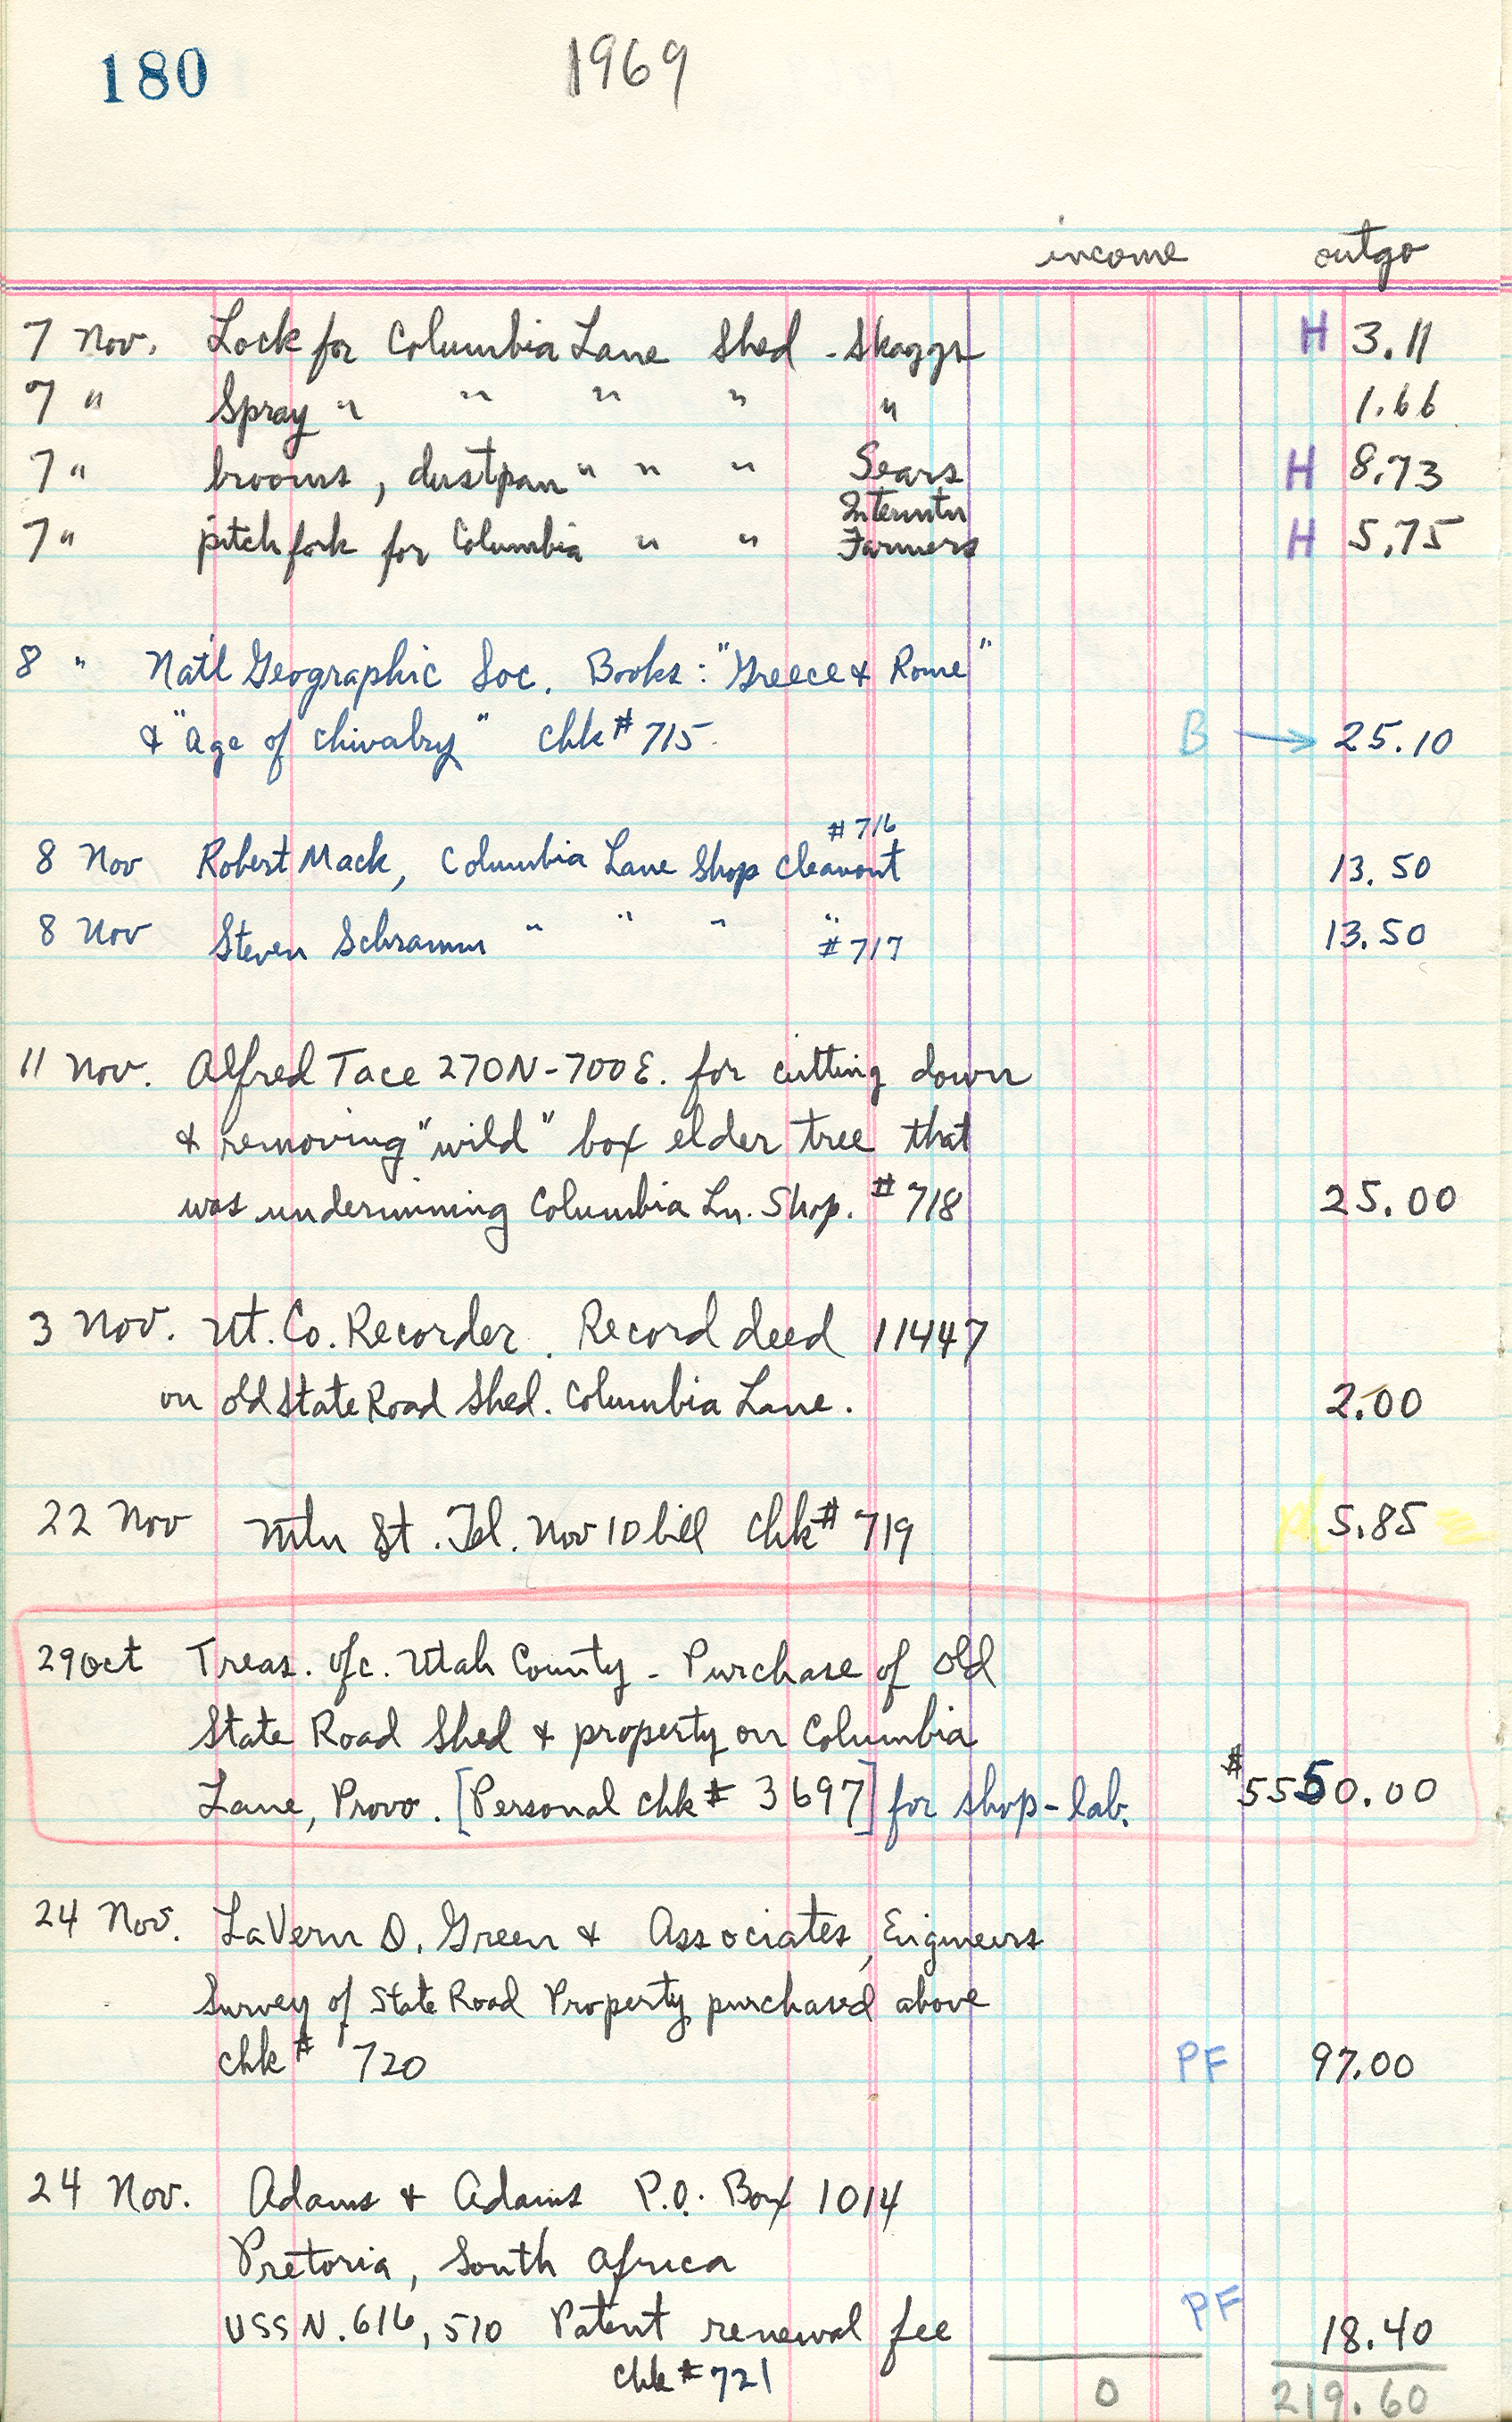 180 1969
income outgo
7 Nov. Lock for Columbia Lane Shed - Skaggs H 3.11
7 " Spray " " " " " 1.66
7 " brooms, dustpan " " " Sears H 8.73
7 " pitchfork for Columbia " " Intermtn Farmers H 5.75
8 " Nat'l Geographic Soc. Books: "Greece & Rome"
& "Age of Chivalry" chk # 715. B → 25.10
#716
8 Nov Robert Mack, Columbia Lane Shop Cleanout 13.50
8 Nov Steven Schramm " " " " #717 13.50
11 Nov. Alfred Tace 270N-700E. for cutting down
& removing "wild" box elder tree that
was undermining Columbia Ln. Shop. #718 25.00
3 Nov. Ut. Co. Recorder. Record deed 11447
on old State Road Shed. Columbia Lane. 2.00
22 Nov Mtn St. Tel. Nov 10 bill Chk# 719 pd 5.85
29 Oct Treas. Ofc. Utah County - Purchase of Old
State Road Shed & property on Columbia
Lane, Provo. [Personal Chk # 3697] for shop-lab. $5550.00
24 Nov. LaVern D. Green & Associates, Engineers
Survey of State Road Property purchased above
chk # 720 PF 97.00
24 Nov. Adams & Adams P.O. Box 1014
Pretoria, South Africa
USSN. 616,510 Patent renewal fee PF 18.40
Chk # 721 0 219.60